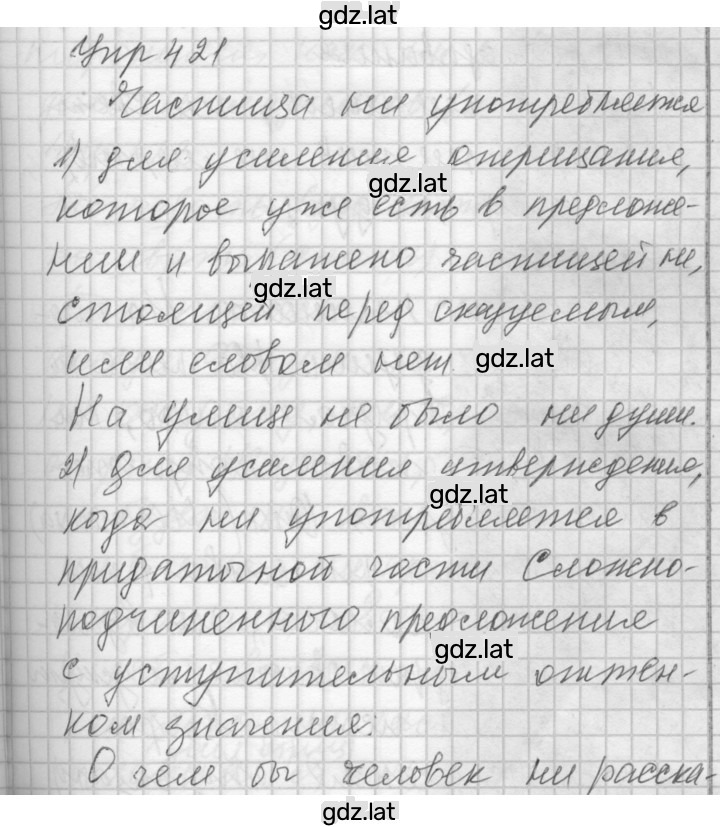 gdz.lat
Упр 421
Частица ни употребляется
1) для усиления отрицания,
gdz.lat
которое уже есть в предложе-
нии и выражено частицей не,
gdz.lat
стоящей перед сказуемым,
или словом нет. gdz.lat
На улице не было ни души.
2) для усиления утверждения,
gdz.lat
когда ни употребляется в
придаточной части сложно-
подчиненного предложения
gdz.lat
с уступительным оттен-
ком значения:
О чем бы человек ни расска-
gdz.lat